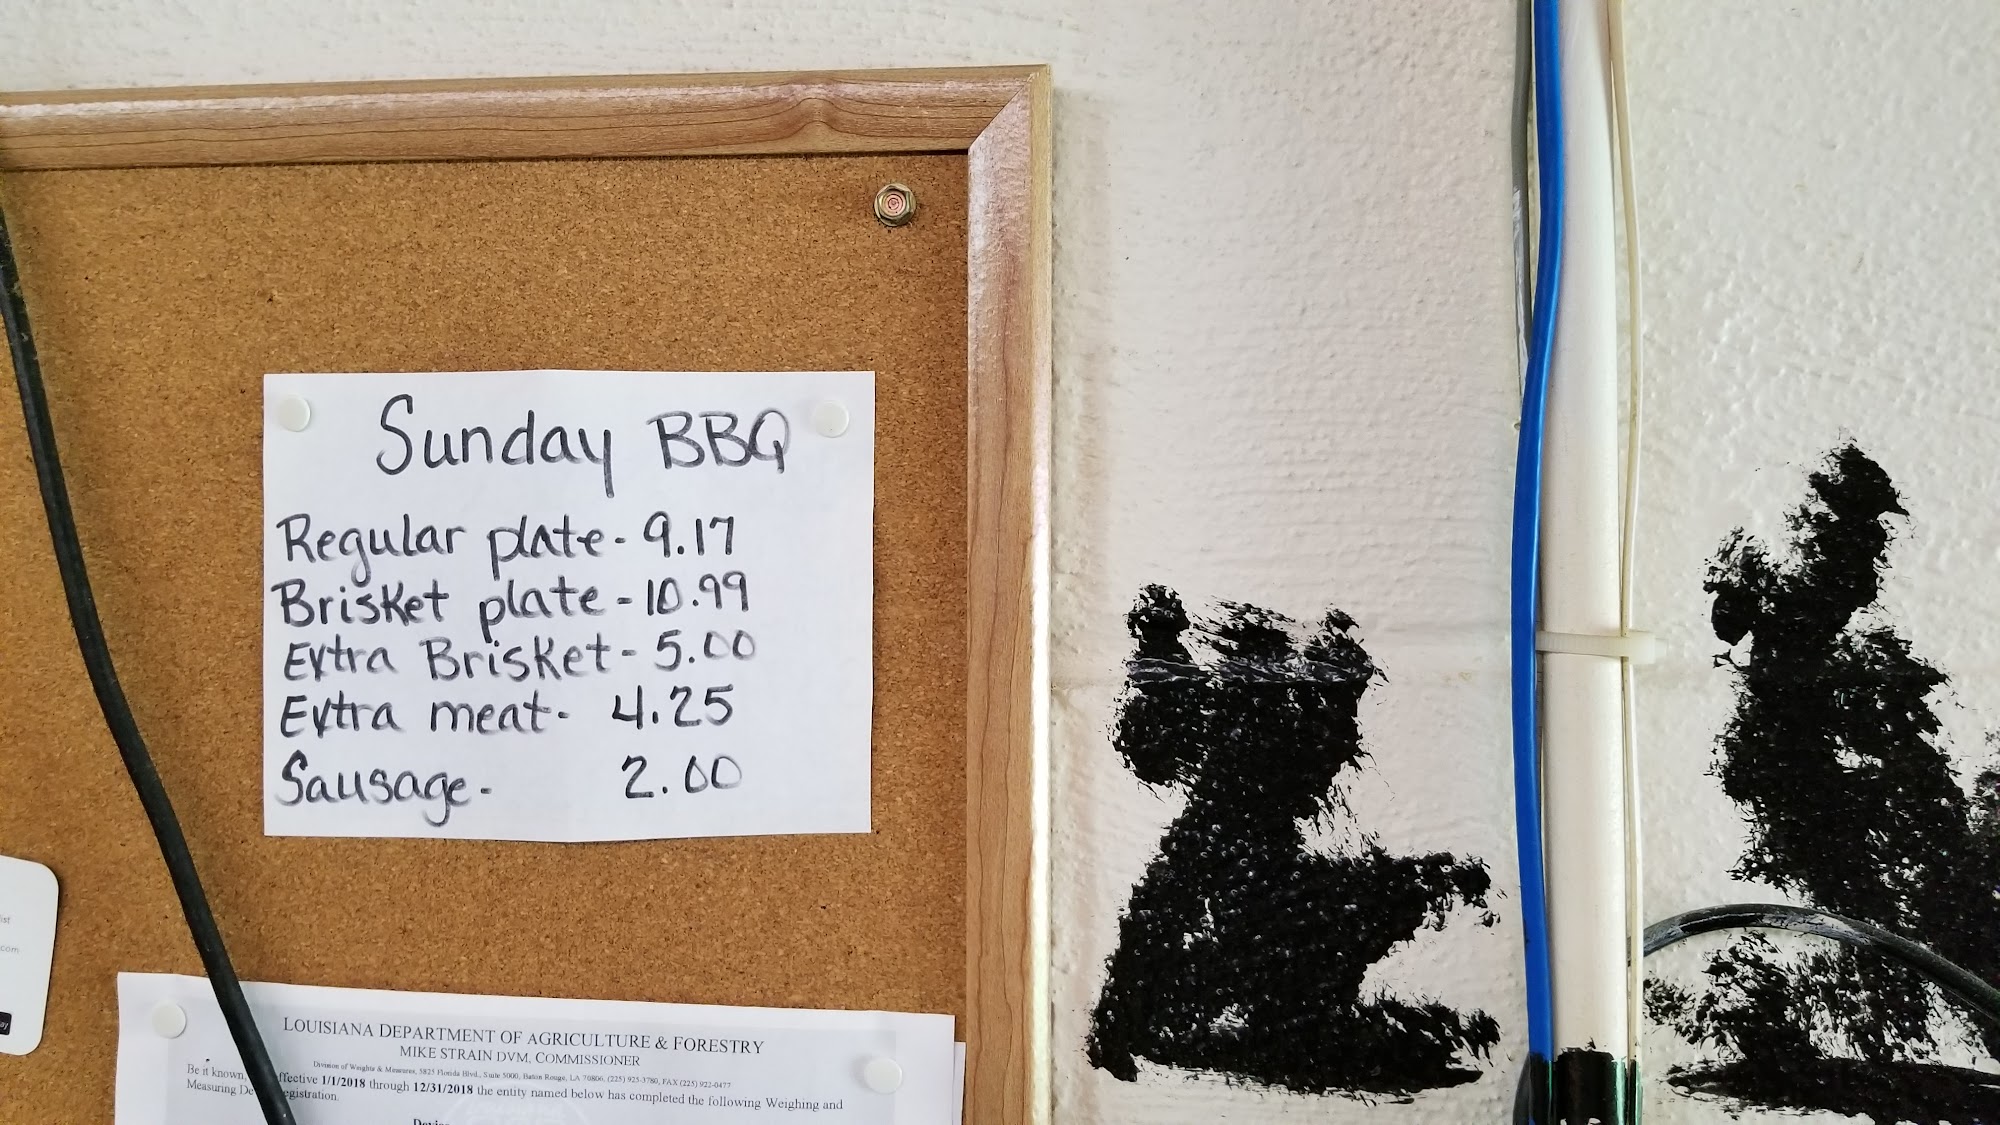 Sunday BBQ
Regular plate - 9.17
Brisket plate - 10.99
Extra Brisket - 5.00
Extra meat - 4.25
Sausage - 2.00
LOUISIANA DEPARTMENT OF AGRICULTURE & FORESTRY
MIKE STRAIN DVM, COMMISSIONER
Division of Weights & Measures, 5825 Florida Blvd., Suite 5000, Baton Rouge, LA 70806, (225) 925-3780, FAX (225) 922-0477
Be it known, effective 1/1/2018 through 12/31/2018 the entity named below has completed the following Weighing and
Measuring